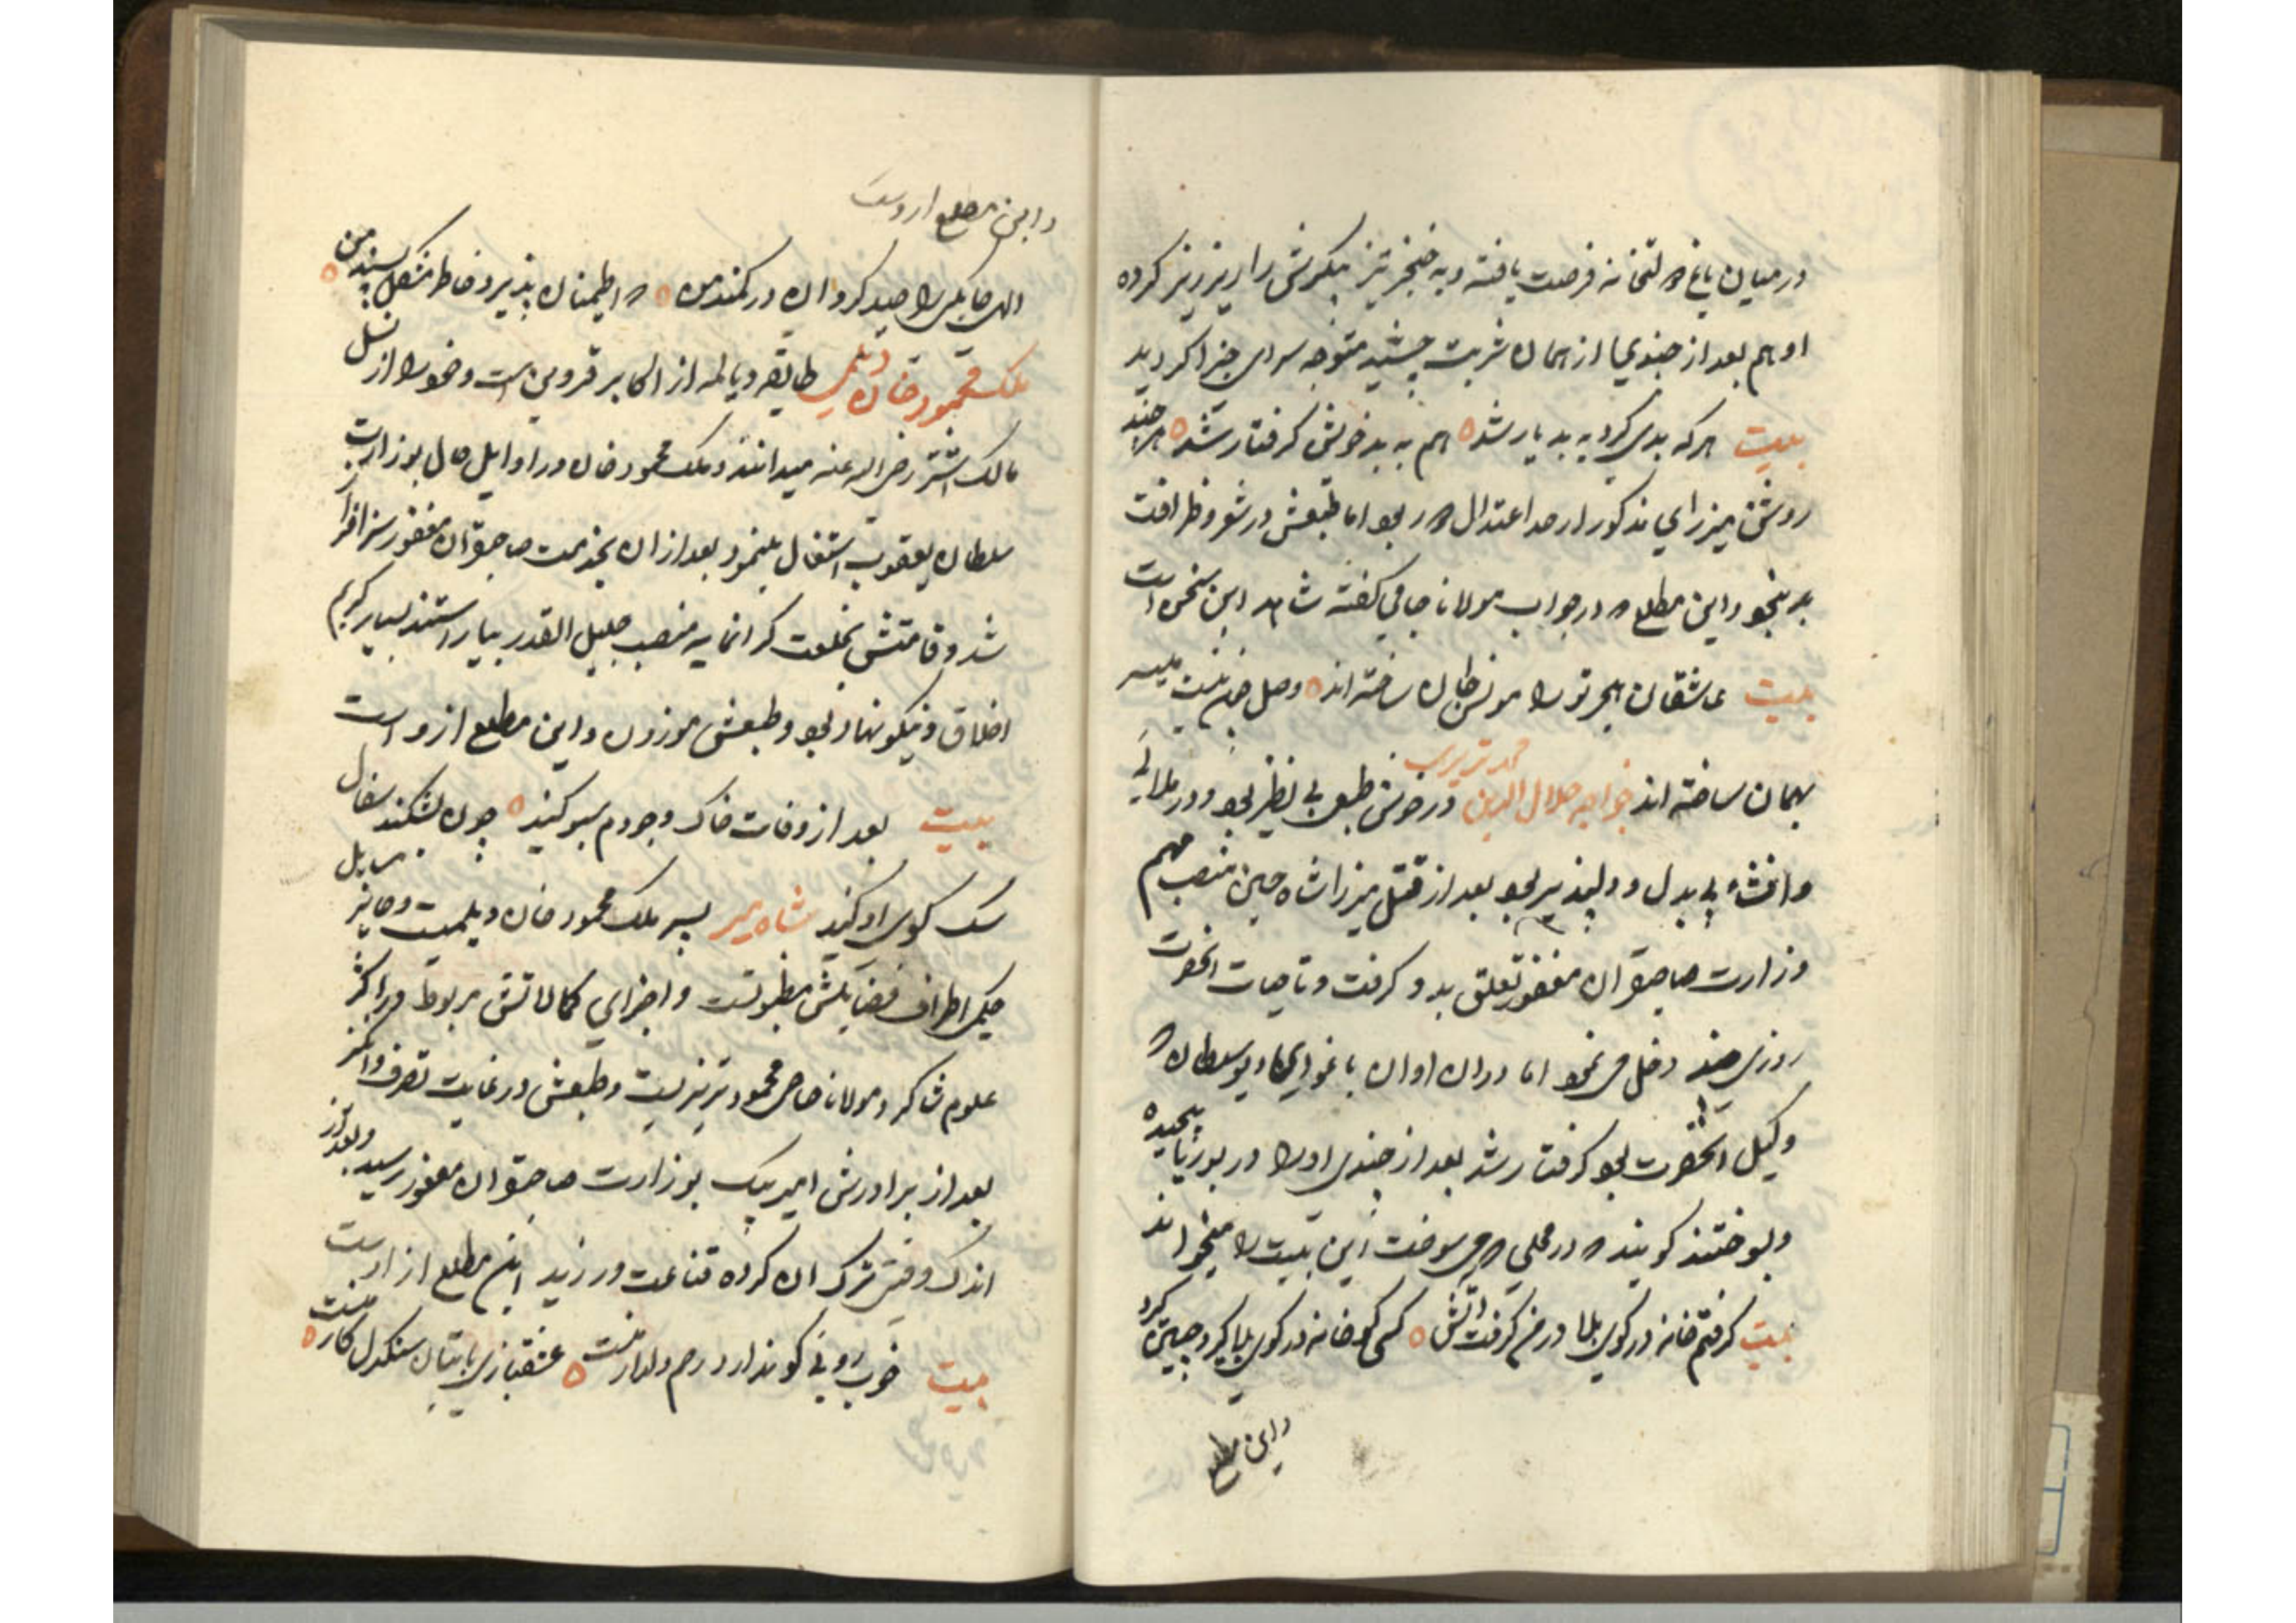 در میان باغ دولتخانه فرصت یافته و به خنجر تیز پیکرش را ریز ریز کرده
او هم بعد از چند یی از همان شربت چشیده متوجه سرای جزا گردید
بیت هر که بدی کرد به بد یار شد هم به بد خویش گرفتار شد هر چند
روش میرزای مذکور از حد اعتدال دور بود اما طبعش در شعر و ظرافت
بد نبود و این مطلع که در جواب مولانا جامی گفته شاهد این سخن است
بیت عاشقان هجر تو را مونس جان ساخته اند وصل چون نیست میسر
بهمان ساخته اند خواجه جلال الدین محمد تبریزی در خوش طبعی بی نظیر بود و در ملایی
و انشاء بی بدل و دلپذیر بود بعد از قتل میرزا شاه حسین منصب مهم
وزارت صاحبقران مغفور تعلق بدو گرفت و تا حیات آنحضرت
روزی چند دخل می نمود اما در آن اوان با غوای دیو سلطان که
وکیل آنحضرت بود گرفتار شد بعد از چندی او را در بوریا پیچیده
و بسوختند گویند که در محلی که می سوخت این بیت را میخواند
بیت گرفتم خانه در کوی بلا در من گرفت آتش کسی کو خانه در کوی بلا گیرد چنین گیرد
و این مطلع
و این مطلع از وست
الهی صایلی را صید گردان در کمند من که اطمینان پذیرد خاطر مشکل پسند من
ملک محمود خان دیلمی طایفه دیالمه از اکابر قزوین است و خود را از نسل
مالک اشتر رضی الله عنه میدانند و ملک محمود خان در اوایل حال بوزارت
سلطان یعقوب اشتغال مینمود بعد از آن بخدمت صاحبقران مغفور سرافراز
شد و قامتش بخلعت گرانمایه منصب جلیل القدر بیاراستند بسیار کریم
اخلاق و نیکو نهاد بود و طبعش موزون و این مطلع از و است
بیت بعد از وفات خاک وجودم سبو کنید چون بشکند سفال
سگ کوی او کنید شاه میر پسر ملک محمود خان دیلمیست و حاوی مسایل
حکمی اطراف فضایلش مضبوطست و اجزای کمالاتش مربوط در اکثر
علوم شاگرد مولانا حاجی محمود تبریزیست و طبعش در غایت تصرف و تمیز
بعد از برادرش امیر بیک بوزارت صاحبقران مغفور رسید و بعد از
اندک وقتی ترک آن کرده قناعت ورزید این مطلع از اوست
بیت خوب رویی کو ندارد رحم دلدار منست عشقبازی با بتان سنگدل کار منست